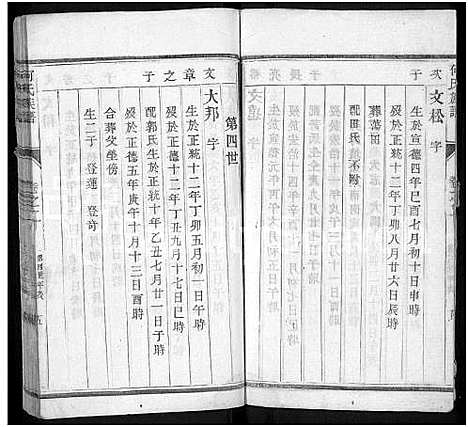 何氏族譜
次
文松 字
生於宣德四年己酉七月初十日申時
歿於正統十二年丁卯八月廿六日辰時
葬
配氏不附
第四世
文章之子
大邦 字
生於正統十二年丁卯五月初一日午時
歿於正德十二年丁丑九月十七日巳時
配郭氏生於正統十年乙丑七月廿一日子時
歿於正德五年庚午十月十三日酉時
合葬父坐傍
生二子 登蓮 登奇
何氏族譜
卷之
五